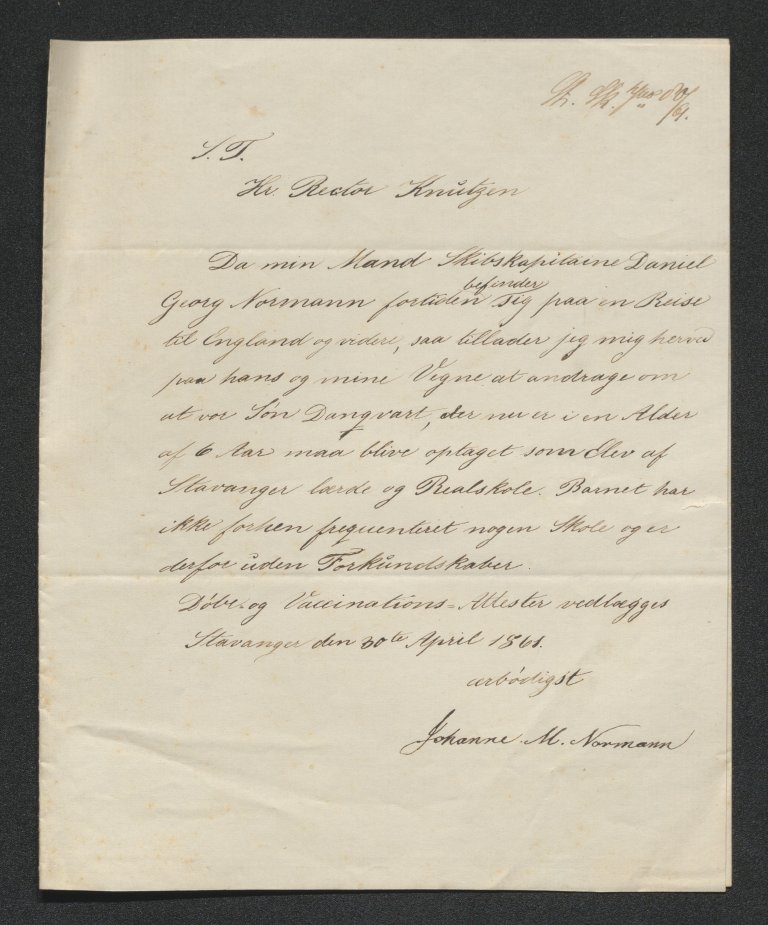 S. T.
Hr. Rector Knutzen
Da min Mand Skibskapitaine Daniel
befinder
Georg Normann fortiden sig paa en Reise
til England og videre, saa tillader jeg mig herved
paa hans og mine Vegne at andrage om
at vor Søn Danqvart, der nu er i en Alder
af 6 Aar maa blive optaget som Elev af
Stavanger lærde og Realskole. Barnet har
ikke forhen frequenteret nogen Skole og er
derfor uden Forkundskaber.
Døbe- og Vaccinations-Attester vedlægges
Stavanger den 30te April 1861.
ærbödigst
Johanne M. Normann